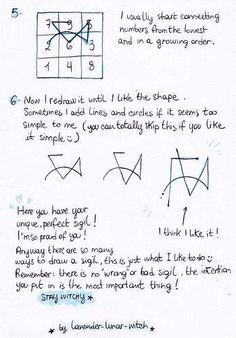 5-
7 9 8
2 6 3
1 4 5
I usually start connecting
numbers from the lowest
and in a growing order.
6- Now I redraw it until I like the shape.
Sometimes I add lines and circles if it seems too
simple to me (you can totally skip this if you like
it simple :)
Here you have your
unique, perfect sigil!
I'm so proud of you!
I think I like it!
Anyway there are so many
ways to draw a sigil, this is just what I like to do
Remember: there is no "wrong" or bad sigil, the intention
you put in is the most important thing!
STAY WITCHY
by lavender-lunar-witch